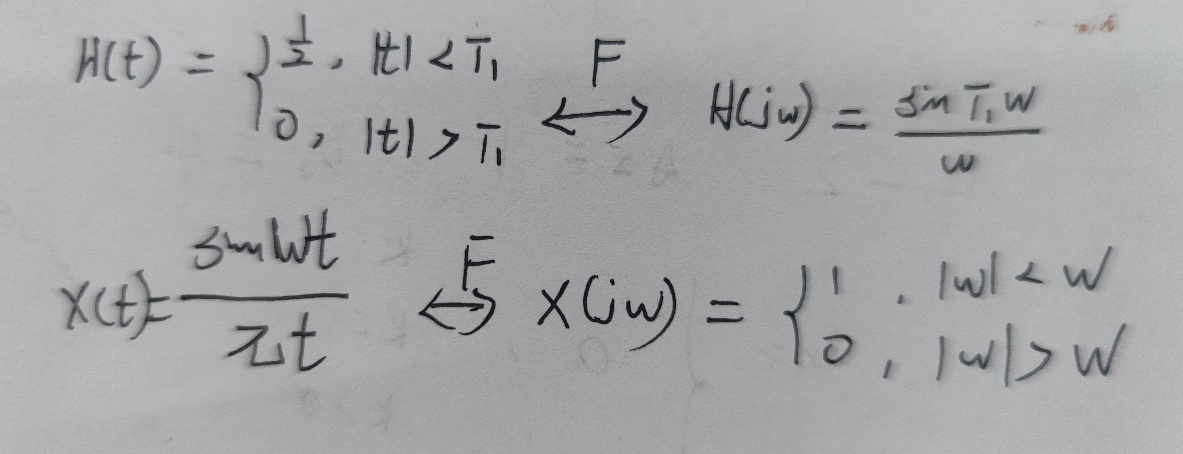 H(t) = { 1/2, |t| < T₁
0, |t| > T₁
F
↔
H(jw) = sin T₁w / w
X(t) = sin Wt / πt
F
↔
X(jw) = { 1, |w| < W
0, |w| > W